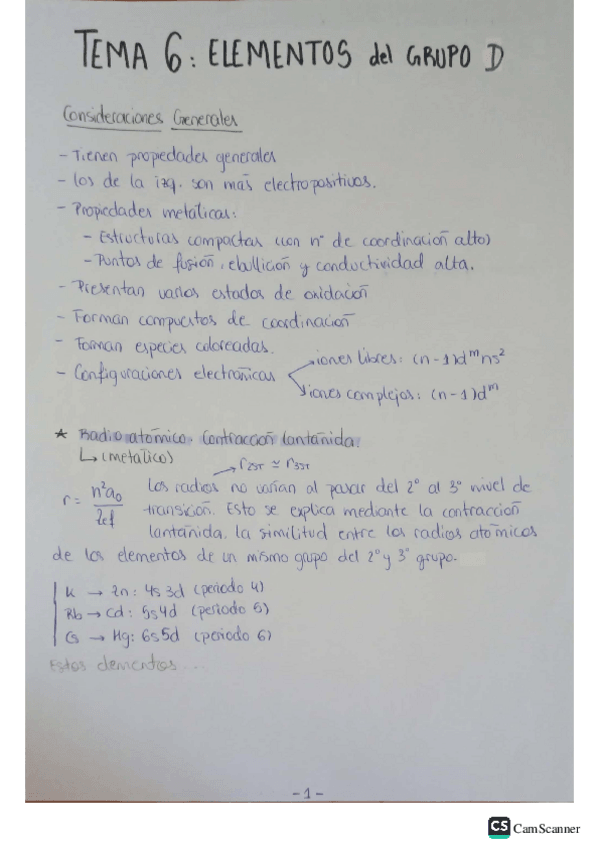 TEMA 6: ELEMENTOS del GRUPO D
Consideraciones Generales
- Tienen propiedades generales
- los de la izq. son más electropositivos.
- Propiedades metálicas:
- Estructuras compactas (con nº de coordinación alto)
- Puntos de fusión, ebullición y conductividad alta.
- Presentan varios estados de oxidación
- Forman compuestos de coordinación
- Forman especies coloreadas.
- Configuraciones electrónicas
iones libres: (n-1)dᵐns²
iones complejos: (n-1)dᵐ
* Radio atómico. Contracción lantánida.
↳ (metálico)
r2ST ≃ r3ST
r = n²a₀ / Zef
Los radios no varían al pasar del 2º al 3º nivel de
transición. Esto se explica mediante la contracción
lantánida. la similitud entre los radios atómicos
de los elementos de un mismo grupo del 2º y 3º grupo.
K → Zn: 4s 3d (periodo 4)
Rb → Cd: 5s4d (periodo 5)
Cs → Hg: 6s5d (periodo 6)
Estos elementos ...
- 1 -
CS CamScanner